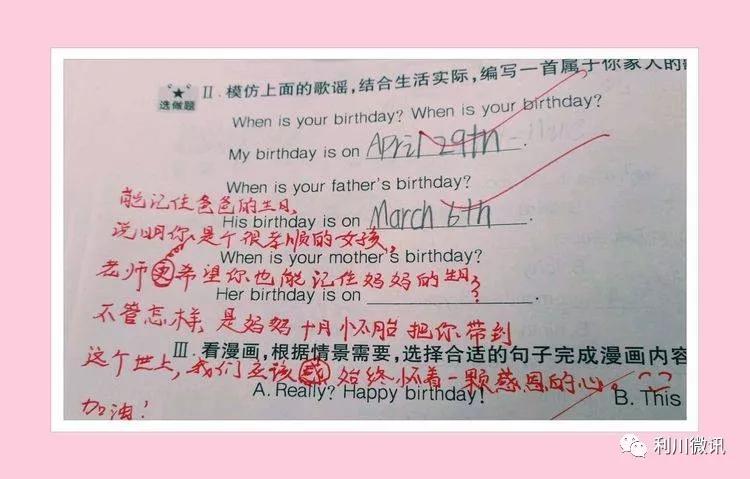 选做题
II. 模仿上面的歌谣,结合生活实际,编写一首属于你家人的
When is your birthday? When is your birthday?
My birthday is on April 29th.
When is your father's birthday?
能记住爸爸的生日,
His birthday is on March 6th.
说明你是个很孝顺的女孩,
When is your mother's birthday?
老师更希望你也能记住妈妈的生日?
Her birthday is on .
不管怎样,是妈妈十月怀胎把你带到
III. 看漫画,根据情景需要,选择合适的句子完成漫画内容
这个世上,我们应该 始终怀着一颗感恩的心。
A. Really? Happy birthday! B. This
加油!
利川微讯